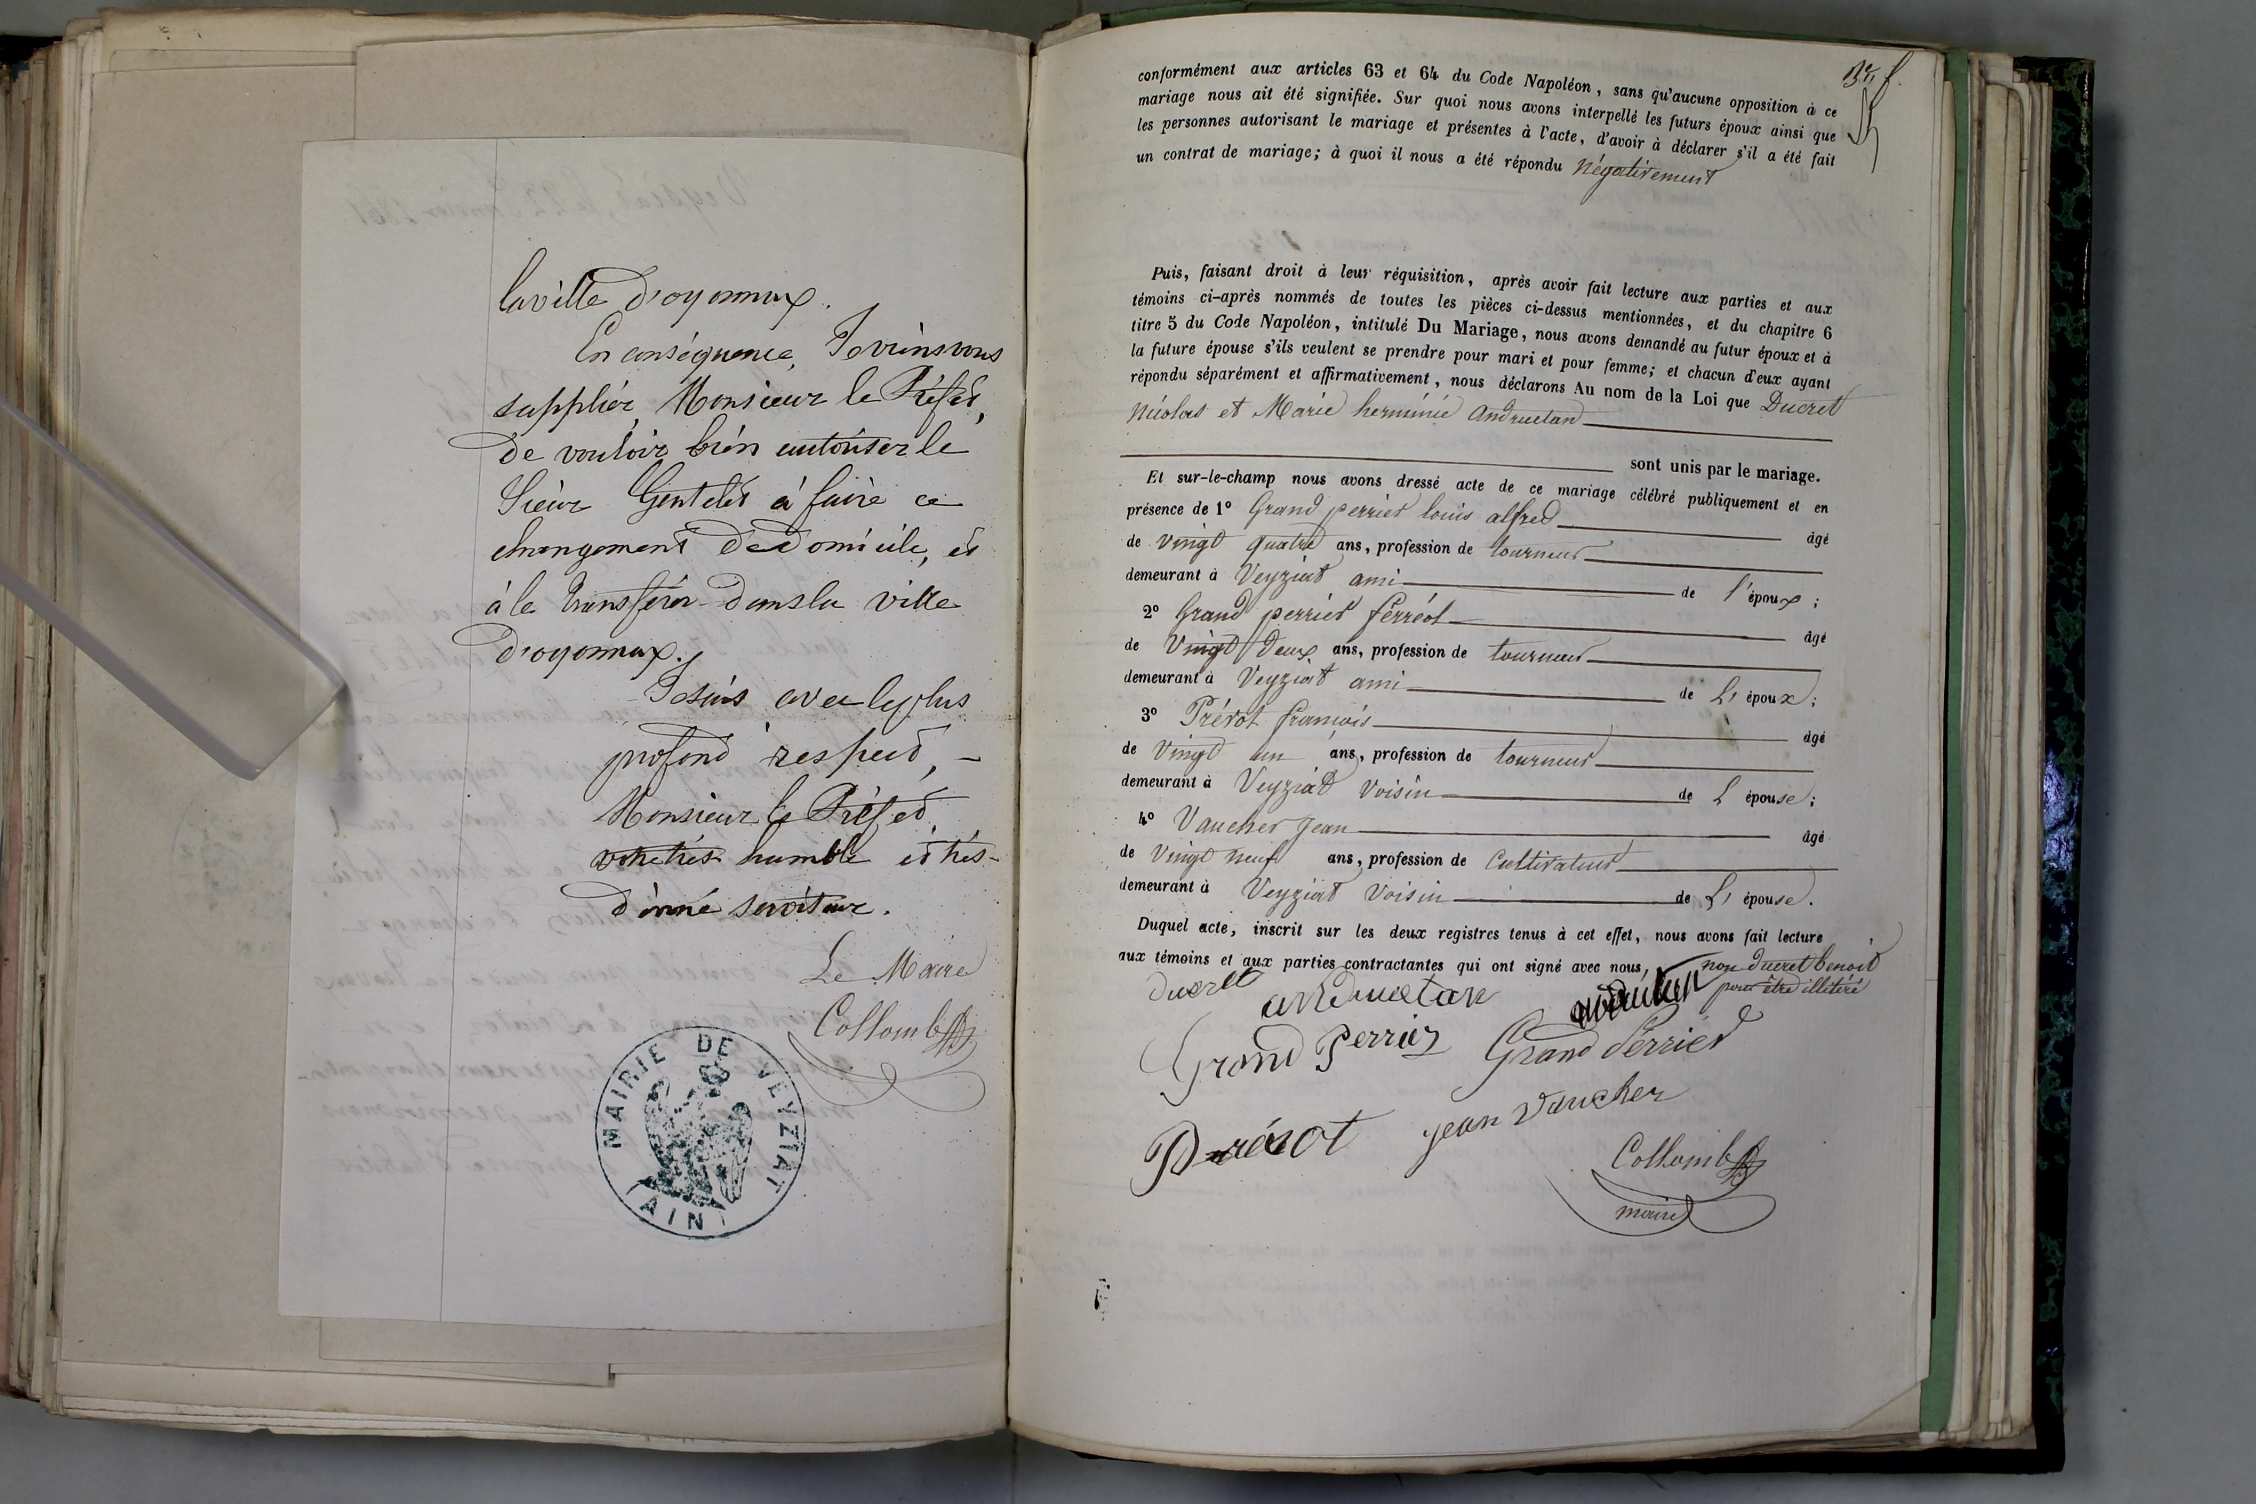 la ville d'oyonnax.
En conséquence, Je viens vous
supplier, Monsieur le Préfet,
de vouloir bien autoriser le
Sieur Gentelet à faire ce
changement de domicile, et
à le transférer dans la ville
d'oyonnax.
Je suis avec le plus
profond respect, -
Monsieur le Préfet
votre très humble et très-
dévoué serviteur.
Le Maire
Collomb
MAIRIE DE VEYZIAT
(AIN)
conformément aux articles 63 et 64 du Code Napoléon, sans qu'aucune opposition à ce
mariage nous ait été signifiée. Sur quoi nous avons interpellé les futurs époux ainsi que
les personnes autorisant le mariage et présentes à l'acte, d'avoir à déclarer s'il a été fait
un contrat de mariage; à quoi il nous a été répondu négativement
Puis, faisant droit à leur réquisition, après avoir fait lecture aux parties et aux
témoins ci-après nommés de toutes les pièces ci-dessus mentionnées, et du chapitre 6
titre 5 du Code Napoléon, intitulé Du Mariage, nous avons demandé au futur époux et à
la future épouse s'ils veulent se prendre pour mari et pour femme; et chacun d'eux ayant
répondu séparément et affirmativement, nous déclarons Au nom de la Loi que Ducret
Nicolas et Marie herminie Andruetan
sont unis par le mariage.
Et sur-le-champ nous avons dressé acte de ce mariage célébré publiquement et en
présence de 1° Grand perrier louis alfred âgé
de vingt quatre ans, profession de tourneur
demeurant à Veyziat ami de l'époux;
2° Grand perrier ferréol âgé
de Vingt Deux ans, profession de tourneur
demeurant à Veyziat ami de L'époux;
3° Prévot françois âgé
de vingt un ans, profession de tourneur
demeurant à Veyziat Voisin de L'épouse;
4° Vaucher Jean âgé
de Vingt neuf ans, profession de Cultivateur
demeurant à Veyziat Voisin de L'épouse.
Duquel acte, inscrit sur les deux registres tenus à cet effet, nous avons fait lecture
aux témoins et aux parties contractantes qui ont signé avec nous, non ducret benoit
pour être illitéré
ducret
andruetan
Grand Perrier
Grand Perrier
Prévot
jean vaucher
Collomb
maire